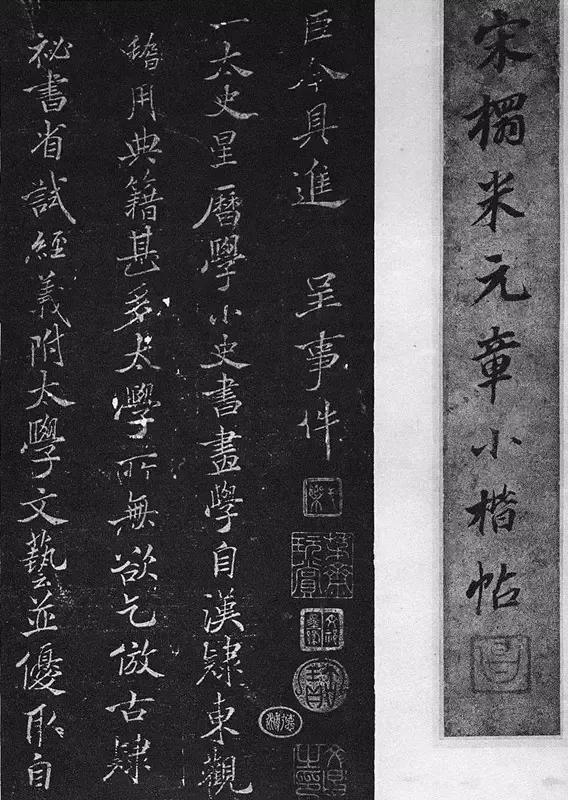 宋榻米元章小楷帖
臣今具進 呈事件
一太史星曆學小史書畫學自漢隸東觀
稽用典籍甚多太學所無欲乞倣古隸
祕書省試經義附太學文藝並優取自